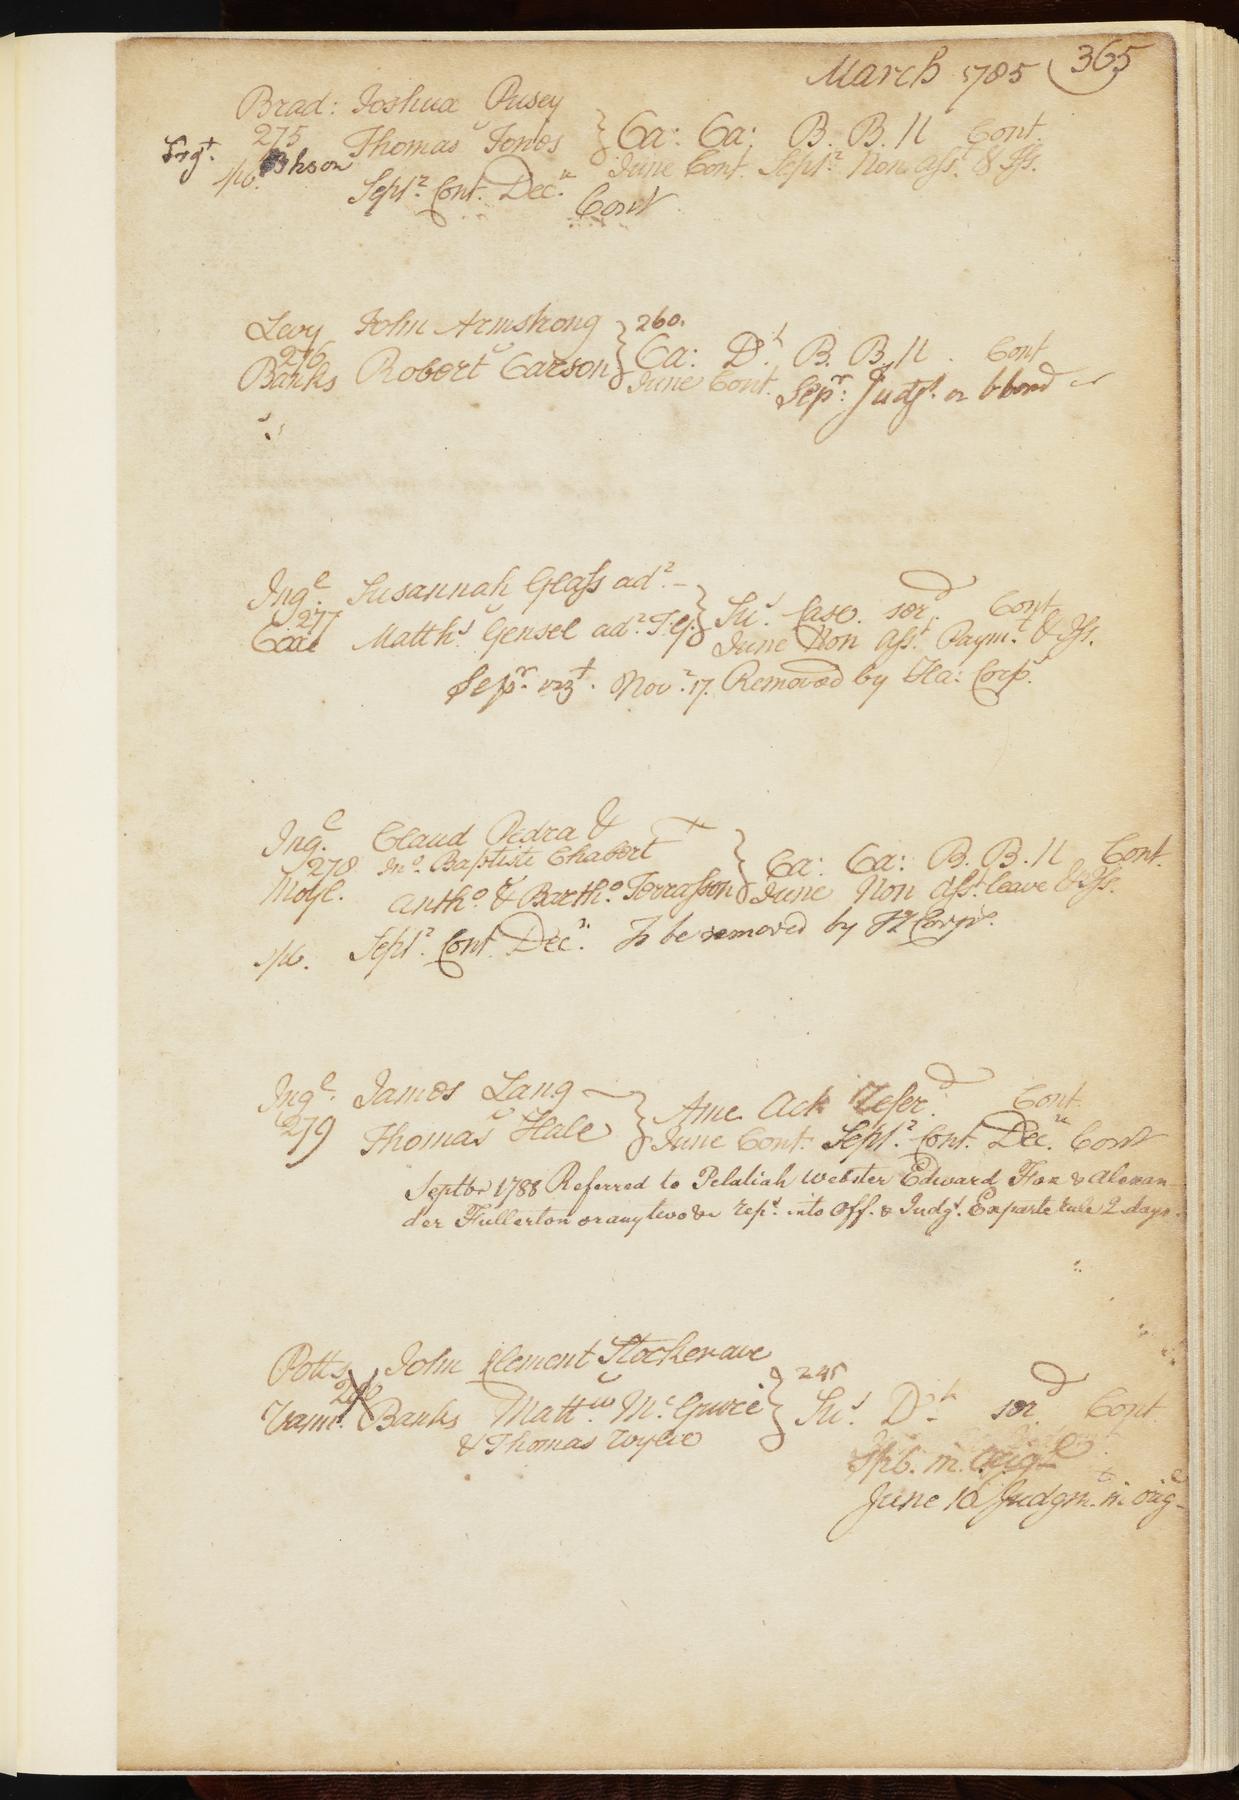 March 1785 365
Brad: Joshua Pusey
275 Thomas Jones } Ca: Ca: B. B. 11 Cont.
Srgt. June Cont. Septr. Non Asst. & Iss.
Septr. Cont. Decr.
Cont
Levy John Armstrong 260.
276 } Ca: Dt. B. B. 11. Cont
Banks Robert Carson June Cont. Sepr: Judgt. on bbond
Inge. Susannah Glass adr.
277 } Sus. Case. ser.d Cont
Matths. Gensel adr. T. G. June Non Asst. Paymt. & Iss.
Sepr. Novr. 17. Removed by Ha: Corps.
Inge. Claud Pedra &
278 Jno. Baptiste Chabert } Ca: Ca: B. B. 11 Cont.
Moyl. Antho. & Bartho. Terrasson June Non Asst. leave & Iss.
Septr. Cont. Decr. To be removed by Hs Corps.
Inge. James Lang
279 } Ame. Ack Refer.d Cont.
Thomas Hale June Cont. Septr. Cont. Decr. Cont
Septbr 1788 Referred to Pelatiah Webster Edward Fox & Alexan
der Fullerton or any two &c rept. into Off. & Judgt. Exparte rule 2 days.
Potts John Clement Stockerave
Banks Mattw. McGuire } 245 Sus. Dt. ser.d Cont.
& Thomas Wylie
June 10 Judgm.t in orig